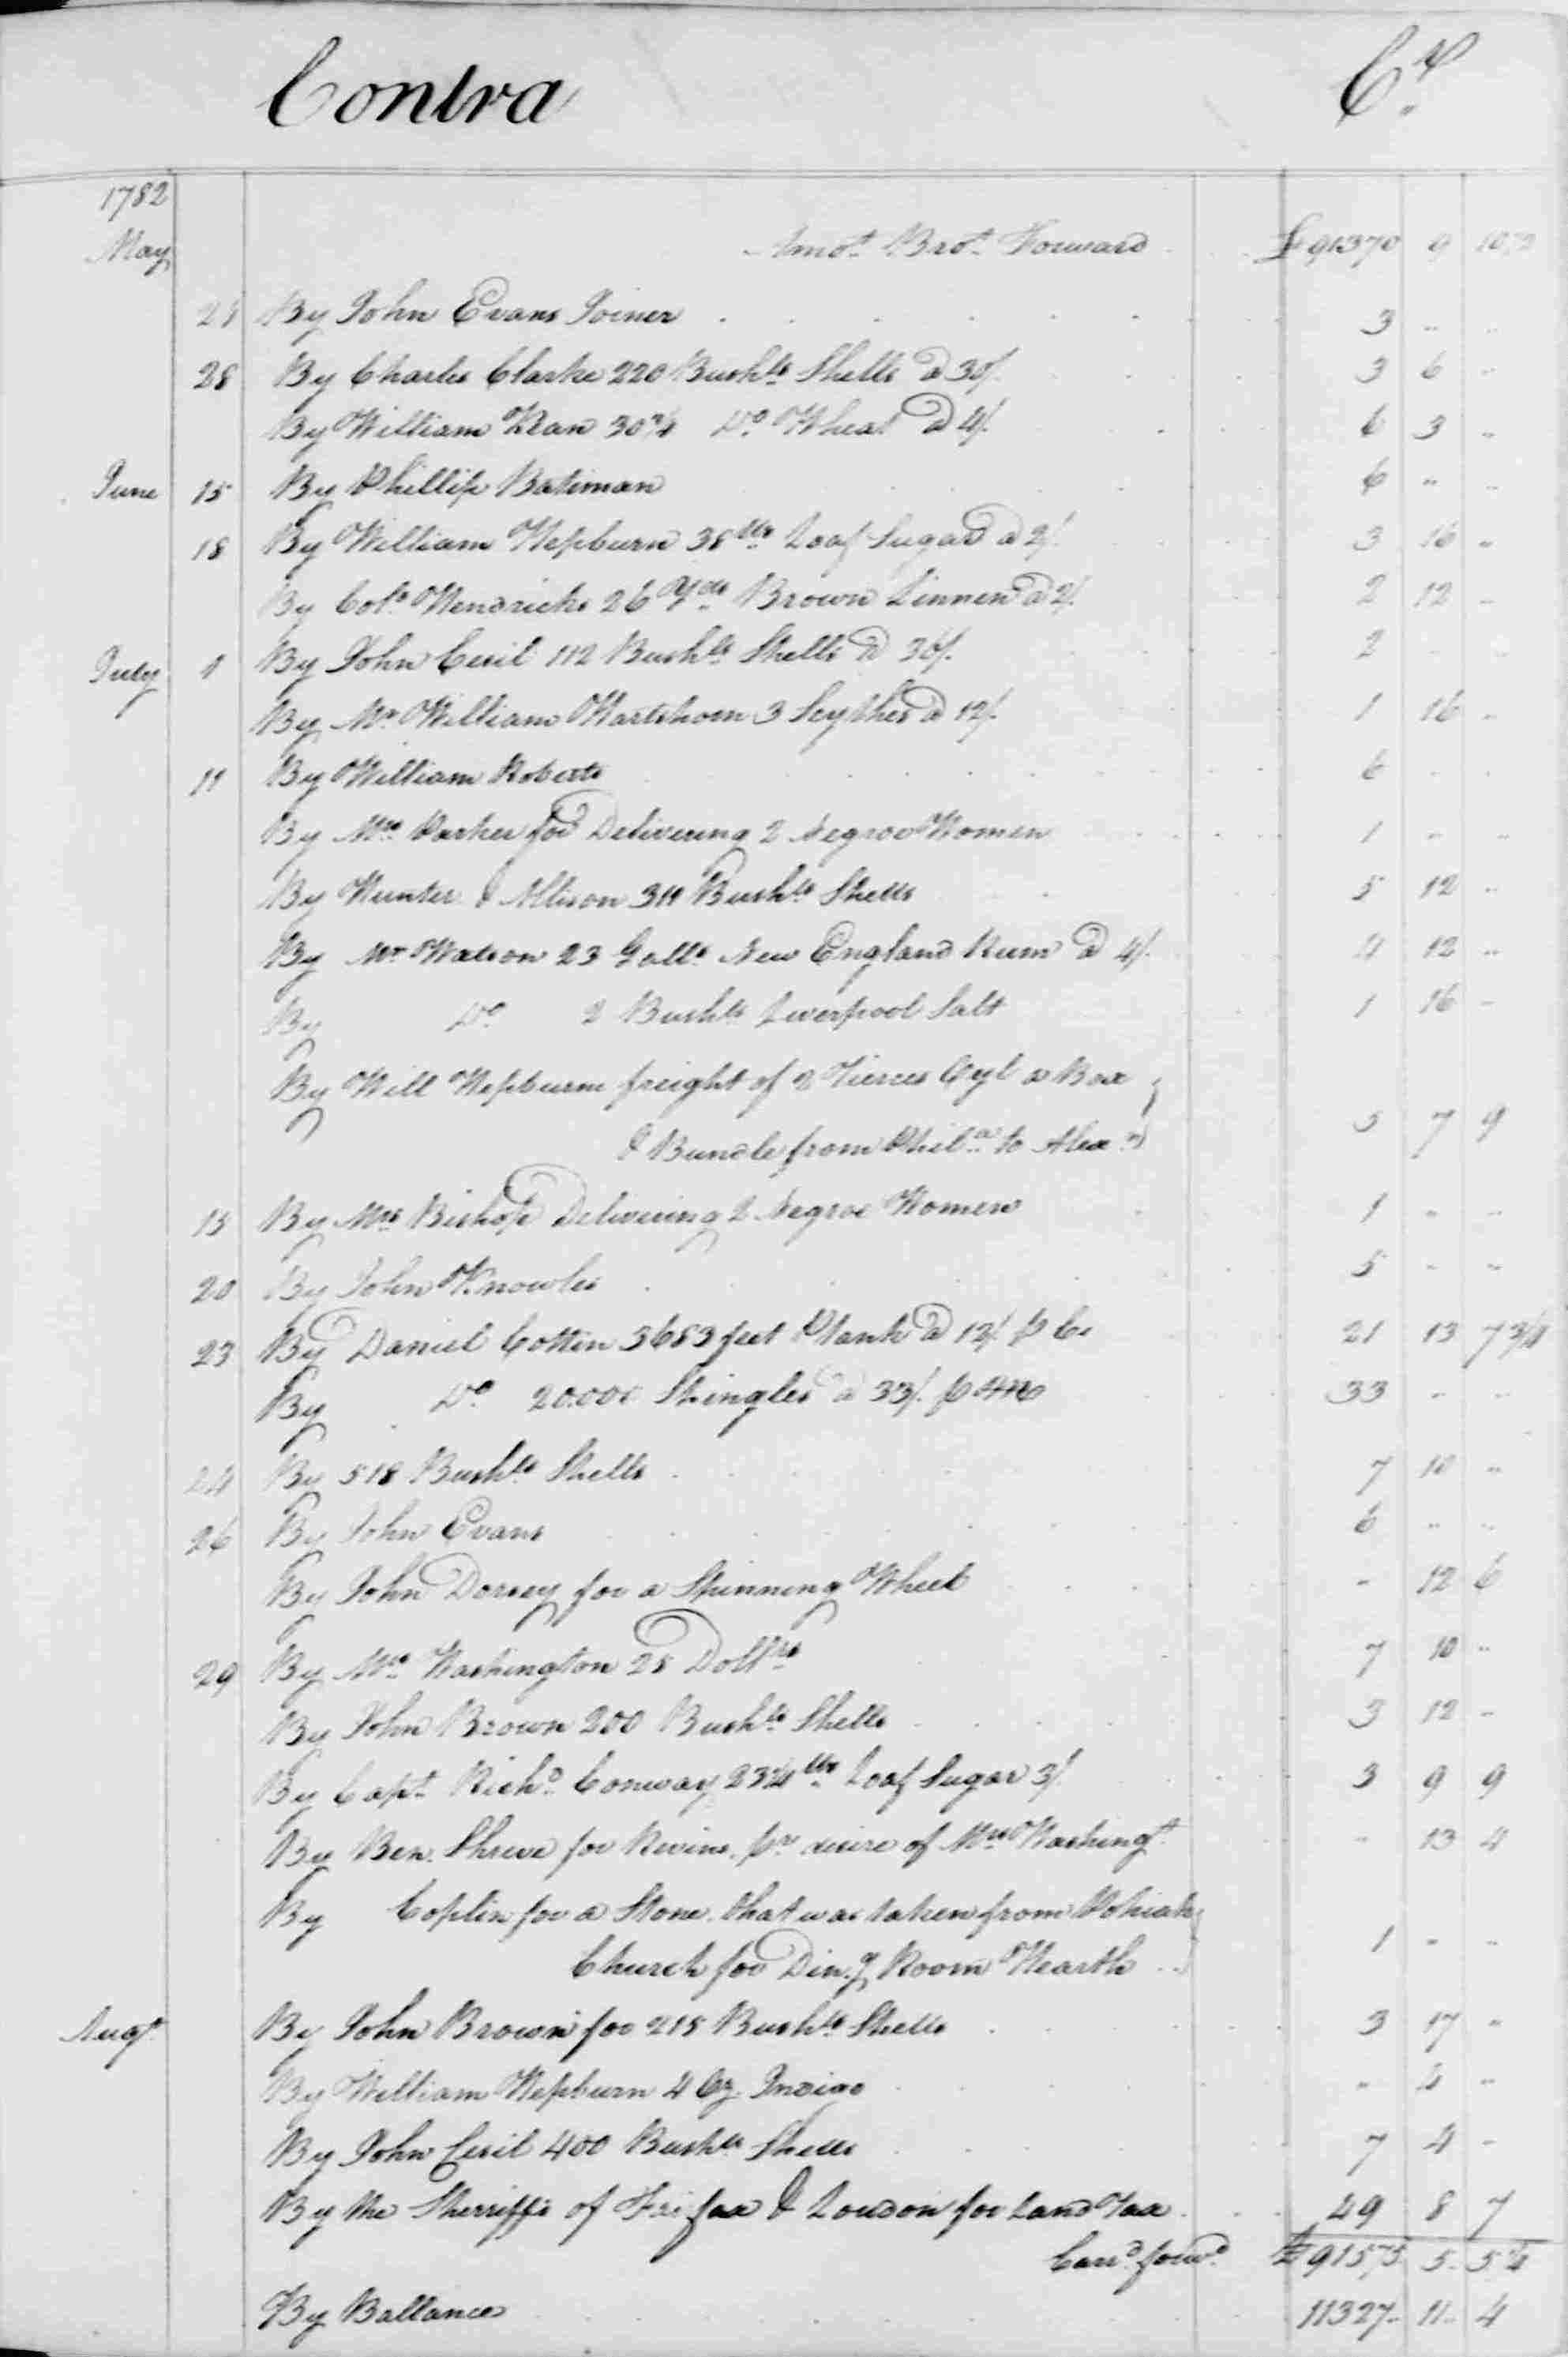 Contra Cr.
1782
May Amot. Brot. Forward £91370 9 10 1/2
By John Evans Joiner 3 " "
28 By Charles Clarke 220 Bushls Shells @ 30/. 3 6 "
By William Kean 30 3/4 Do. Wheat @ 4/. 6 3 "
June 15 By Phillip Bateman 6 " "
18 By William Hepburn 38 lbs Loaf Sugar @ 2/. 3 16 "
By Colo. Hendricks 26 Yds Brown Linnen @ 2/. 2 12 "
July 1 By John Cecil 112 Bushls Shells @ 36/. 2 " "
By Mr William Hartshorn 3 Scythes @ 12/. 1 16 "
11 By William Roberts 6 " "
By Mrs Parker for Delivering 2 Negroe Women 1 " "
By Hunter & Allison 311 Bushls Shells 5 12 "
By Mr. Watson 23 Galls New England Rum @ 4/. 4 12 "
By Do. 2 Bushls Liverpool Salt 1 16 -
By Will Hepburn freight of 2 Tierces Oyl a Box
& Bundle from Phila. to Alexa. 5 7 9
15 By Mrs Bishop Delivering 2 Negroe Women 1 " "
20 By John Knowles 5 - "
23 By Daniel Cotten 3683 feet Plank @ 12/. p Ct. 21 13 7 3/4
By Do 20.000 Shingles @ 33/. p 33 " "
24 By 518 Bushls Shells 7 10 "
26 By John Evans 6 " "
By John Dorsey for a Spinning Wheel - 12 6
29 By Mrs. Washington 25 Dollrs 7 10 "
By John Brown 200 Bushls Shells 3 12 -
By Capt. Richd. Conway 23 1/4 lbs Loaf Sugar 3/. 3 9 9
By Ben. Shreve for pr desire of Mrs Washingt. " 13 4
By Coplin for a Stone that was taken from Pohick
Church for Din.g Room Hearth 1 - -
Augt. By John Brown for 215 Bushls Shells 3 17 "
By William Hepburn 4 Oz. Indigo " 4 "
By John Cecil 400 Bushls Shells 7 4 -
By the Sherriffs of Fairfax & Loudon for Land Tax 49 8 7
Carrd. forwd. £91575 5 5 1/4
By Ballance 11327 11 4